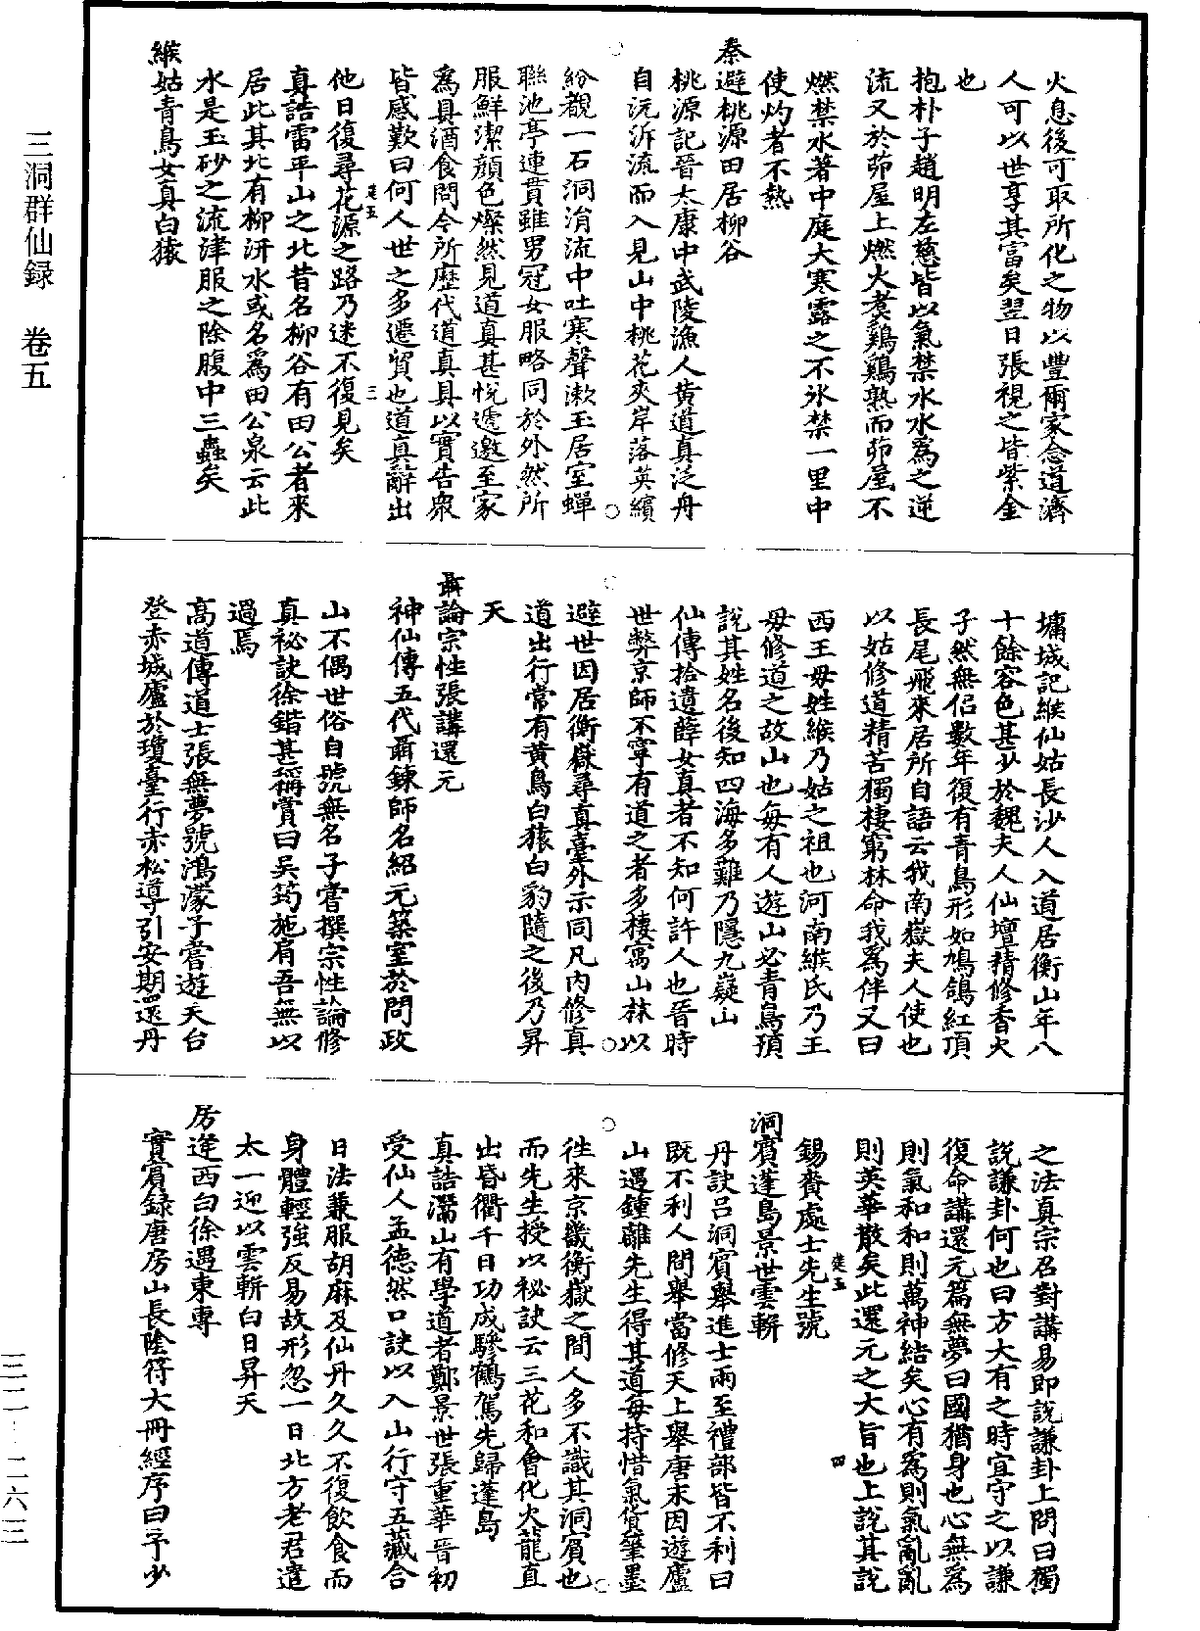 三洞群仙録　卷五
火息後可取所化之物以豐爾家念道濟
人可以世享其富矣翌日張視之皆紫金
也
抱朴子趙明左慈皆以氣禁水水爲之逆
流又於茆屋上燃火煑鷄鷄熟而茆屋不
燃禁水著中庭大寒露之不氷禁一里中
使灼者不熱
秦避桃源田居柳谷
桃源記晉太康中武陵漁人黄道真泛舟
自沅泝流而入見山中桃花夾岸落英繽
紛觀一石洞涓流中吐寒聲漱玉居室蟬
聯池亭連貫雖男冠女服略同於外然所
服鮮潔顔色燦然見道真甚悅遞邀至家
爲具酒食問今所歷代道真具以實告衆
皆感歎曰何人世之多遷貿也道真辭出
他日復尋花源之路乃迷不復見矣
真誥雷平山之北昔名柳谷有田公者來
居此其北有柳汧水或名爲田公泉云此
水是玉砂之流津服之除腹中三蟲矣
緱姑青鳥女真白猿
墉城記緱仙姑長沙人入道居衡山年八
十餘容色甚少於魏夫人仙壇精修香火
孑然無侣數年復有青鳥形如鳩鴿紅頂
長尾飛來居所自語云我南嶽夫人使也
以姑修道精苦獨棲窮林命我爲伴又曰
西王母姓緱乃姑之祖也河南緱氏乃王
母修道之故山也每有人遊山必青鳥預
說其姓名後知四海多難乃隱九嶷山
仙傳拾遺薛女真者不知何許人也晉時
世弊京師不寧有道之者多棲寓山林以
避世因居衡嶽尋真臺外示同凡内修真
道出行常有黄鳥白猿白豹隨之後乃昇
天
聶論宗性張講還元
神仙傳五代聶鍊師名紹元築室於問政
山不偶世俗自號無名子嘗撰宗性論修
真祕訣徐鍇甚稱賞曰吴筠施肩吾無以
過焉
高道傳道士張無夢號鴻濛子嘗遊天台
登赤城廬於瓊臺行赤松導引安期還丹
之法真宗召對講易即說謙卦上問曰獨
說謙卦何也曰方大有之時宜守之以謙
復命講還元篇無夢曰國猶身也心無爲
則氣和和則萬神結矣心有爲則氣亂亂
則英華散矣此還元之大旨也上說其說
錫賚處士先生號
洞賓蓬島景世雲輧
丹訣吕洞賓舉進士兩至禮部皆不利曰
既不利人間舉當修天上舉唐末因遊廬
山遇鍾離先生得其道每持惜氣貨筆墨
徃來京畿衡嶽之間人多不識其洞賓也
而先生授以秘訣云三花和會化火龍直
出昏衢千日功成驂鶴駕先歸蓬島
真誥灊山有學道者鄭景世張重華晉初
受仙人孟德然口訣以入山行守五藏合
日法兼服胡麻及仙丹久久不復飲食而
身體輕強反易故形忽一日北方老君遣
太一迎以雲輧白日昇天
房逢西白徐遇東專
實賓録唐房山長隂符大冊經序曰予少
三
四
三二—二六三